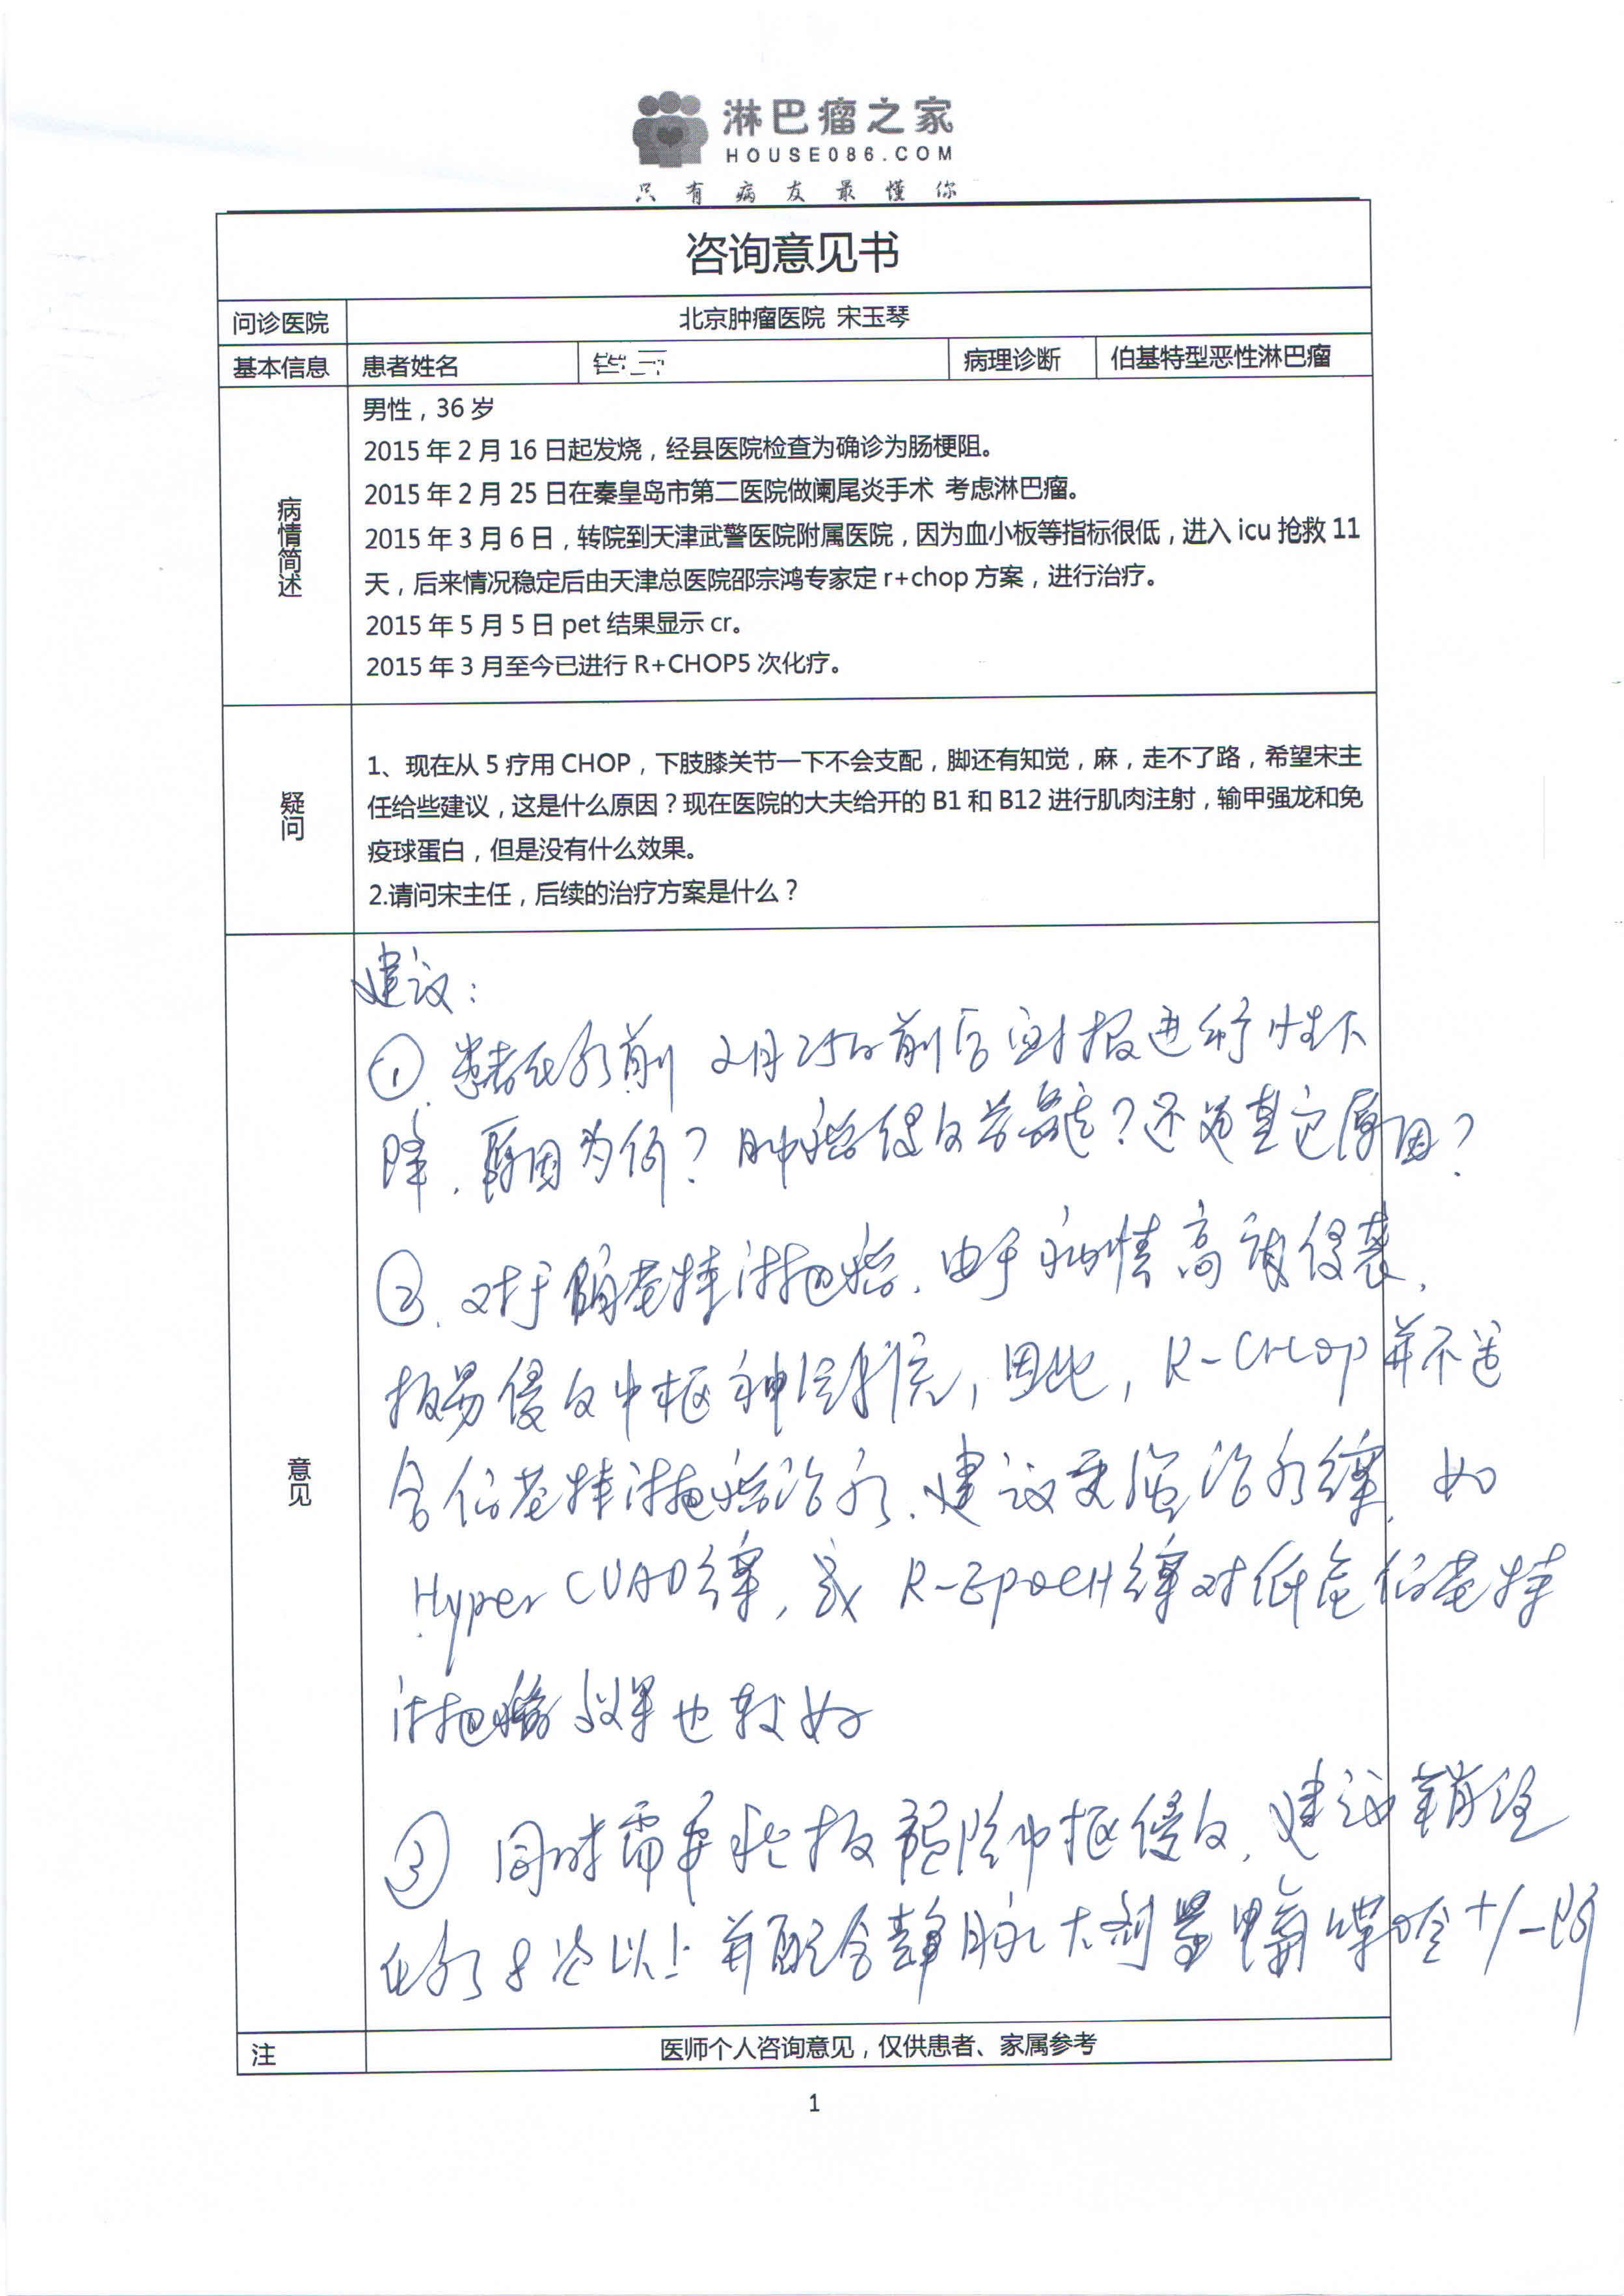 淋巴瘤之家
HOUSE086.COM
只有病友最懂你
咨询意见书
问诊医院 北京肿瘤医院 宋玉琴
基本信息 患者姓名 病理诊断 伯基特型恶性淋巴瘤
病情简述
男性，36 岁
2015 年 2 月 16 日起发烧，经县医院检查为确诊为肠梗阻。
2015 年 2 月 25 日在秦皇岛市第二医院做阑尾炎手术 考虑淋巴瘤。
2015 年 3 月 6 日，转院到天津武警医院附属医院，因为血小板等指标很低，进入 icu 抢救 11
天，后来情况稳定后由天津总医院邵宗鸿专家定 r+chop 方案，进行治疗。
2015 年 5 月 5 日 pet 结果显示 cr。
2015 年 3 月至今已进行 R+CHOP5 次化疗。
疑问
1、现在从 5 疗用 CHOP，下肢膝关节一下不会支配，脚还有知觉，麻，走不了路，希望宋主
任给些建议，这是什么原因？现在医院的大夫给开的 B1 和 B12 进行肌肉注射，输甲强龙和免
疫球蛋白，但是没有什么效果。
2.请问宋主任，后续的治疗方案是什么？
意见
建议：
① 患者化疗前 2月25日前后 血报进行性下
降，原因为何？肿瘤侵及骨髓？还是其它原因？
②. 对于伯基特淋巴瘤，由于病情高度侵袭，
极易侵及中枢神经系统，因此，R-CHOP 并不适
合伯基特淋巴瘤治疗，建议更强治疗方案，如
Hyper CVAD方案，或 R-EPOCH方案对低危伯基特
淋巴瘤效果也较好
③ 同时需要积极预防中枢侵及，建议鞘注
化疗8次以上并配合静脉大剂量甲氨喋呤+/-阿
注 医师个人咨询意见，仅供患者、家属参考
1